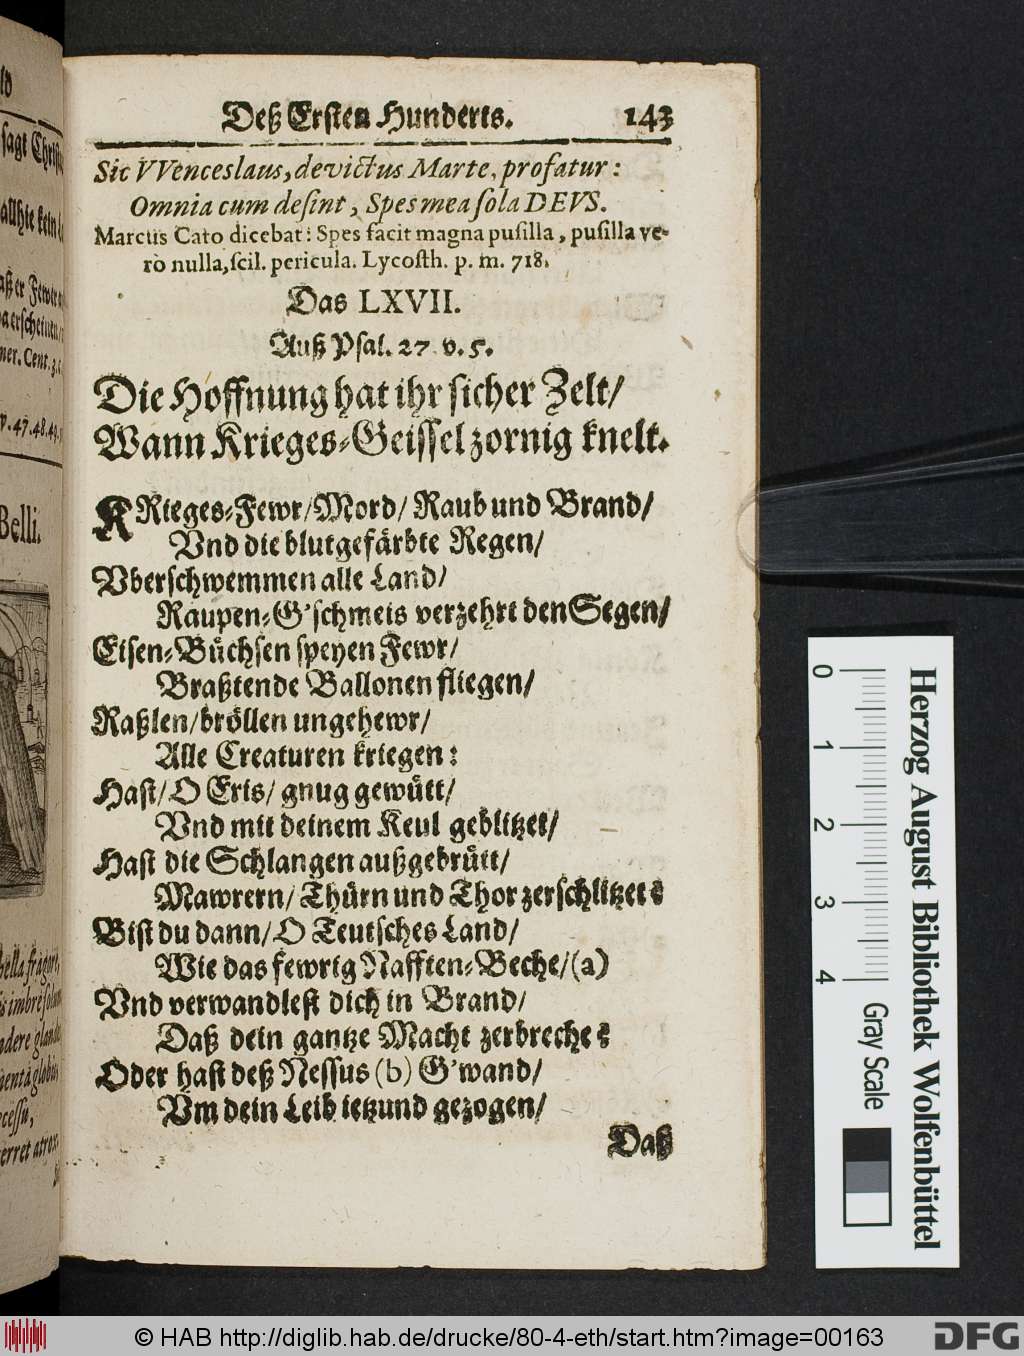 Deß Ersten Hunderts. 143
Sic VVenceslaus, devictus Marte, profatur:
Omnia cum desint, Spes mea sola DEVS.
Marcus Cato dicebat: Spes facit magna pusilla, pusilla ve-
rò nulla, scil. pericula. Lycosth. p. m. 718.
Das LXVII.
Auß Psal. 27 v. 5.
Die Hoffnung hat ihr sicher Zelt/
Wann Krieges-Geissel zornig knelt.
KRieges-Fewr/Mord/ Raub und Brand/
Vnd die blutgefärbte Regen/
Vberschwemmen alle Land/
Raupen-G'schmeis verzehrt den Segen/
Eisen-Büchsen speyen Fewr/
Braßtende Ballonen fliegen/
Raßlen/bröllen ungehewr/
Alle Creaturen kriegen:
Hast/ O Eris/ gnug gewütt/
Vnd mit deinem Keul geblitzet/
Hast die Schlangen außgebrütt/
Mawrern/ Thürn und Thor zerschlitzet:
Bist du dann/ O Teutsches Land/
Wie das fewrig Nafften-Beche/(a)
Vnd verwandlest dich in Brand/
Daß dein gantze Macht zerbreche:
Oder hast deß Nessus (b) G'wand/
Vm dein Leib ietzund gezogen/
Daß
sagt
kein
er Fewer
erscheinen
ner. Cent. 3.
v. 47. 48. 49.
Belli.
bella fragor
imbre
globis
cessu,
erret atrox
Herzog August Bibliothek Wolfenbüttel
0 1 2 3 4
Gray Scale
© HAB http://diglib.hab.de/drucke/80-4-eth/start.htm?image=00163
DFG